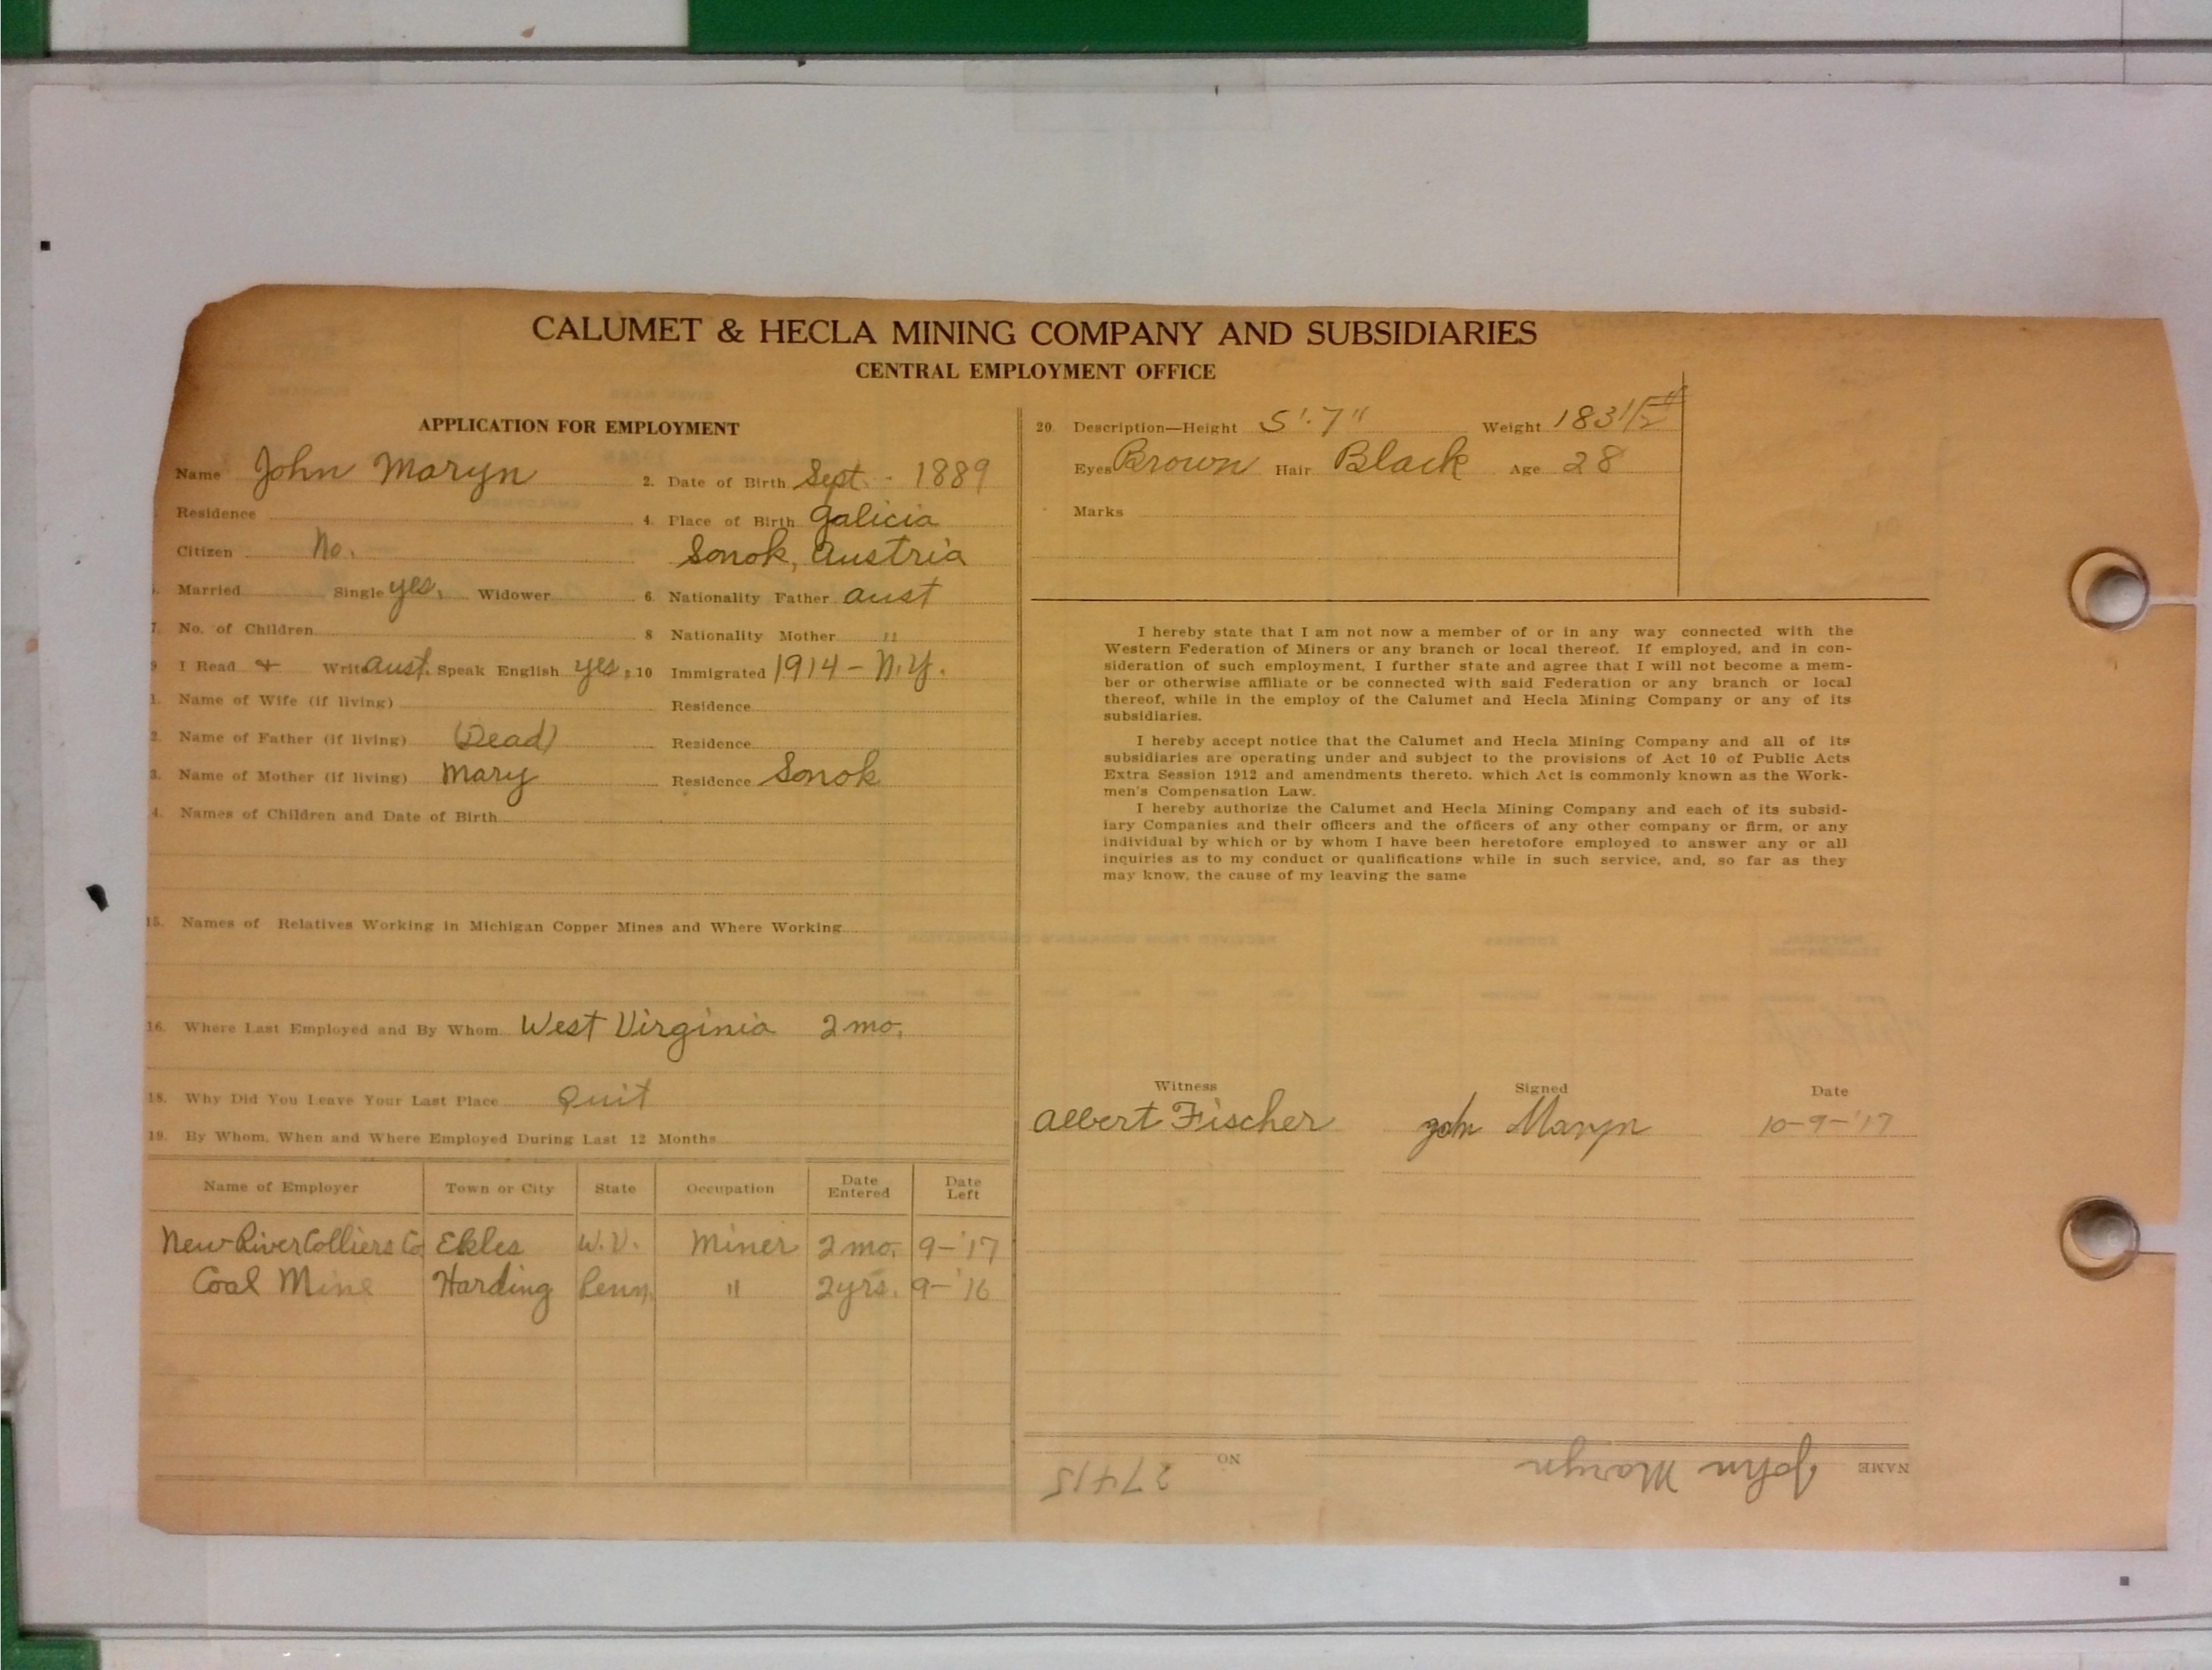 CALUMET & HECLA MINING COMPANY AND SUBSIDIARIES
CENTRAL EMPLOYMENT OFFICE
APPLICATION FOR EMPLOYMENT
Name John Maryn
2. Date of Birth Sept. - 1889
Residence
4. Place of Birth Galicia
Citizen No.
Sonok, Austria
Married Single yes. Widower
6. Nationality Father Aust
7. No. of Children
8 Nationality Mother "
9 I Read + Write Aust. Speak English yes.
10 Immigrated 1914 - N.Y.
1. Name of Wife (if living) Residence
2. Name of Father (if living) (Dead) Residence
3. Name of Mother (if living) Mary Residence Sonok
4. Names of Children and Date of Birth
15. Names of Relatives Working in Michigan Copper Mines and Where Working
16. Where Last Employed and By Whom West Virginia 2 mo.
18. Why Did You Leave Your Last Place Quit
19. By Whom, When and Where Employed During Last 12 Months
Name of Employer Town or City State Occupation Date Entered Date Left
New River Colliers Co Ekles W.V. Miner 2 mo. 9-'17
Coal Mine Harding Penn. " 2 yrs. 9-'16
20. Description—Height 5'.7" Weight 183 1/2 #
Eyes Brown Hair Black Age 28
Marks
I hereby state that I am not now a member of or in any way connected with the
Western Federation of Miners or any branch or local thereof. If employed, and in con-
sideration of such employment, I further state and agree that I will not become a mem-
ber or otherwise affiliate or be connected with said Federation or any branch or local
thereof, while in the employ of the Calumet and Hecla Mining Company or any of its
subsidiaries.
I hereby accept notice that the Calumet and Hecla Mining Company and all of its
subsidiaries are operating under and subject to the provisions of Act 10 of Public Acts
Extra Session 1912 and amendments thereto, which Act is commonly known as the Work-
men's Compensation Law.
I hereby authorize the Calumet and Hecla Mining Company and each of its subsid-
iary Companies and their officers and the officers of any other company or firm, or any
individual by which or by whom I have been heretofore employed to answer any or all
inquiries as to my conduct or qualifications while in such service, and, so far as they
may know, the cause of my leaving the same
Witness Signed Date
Albert Fischer John Maryn 10-9-'17
NAME John Maryn NO 27415